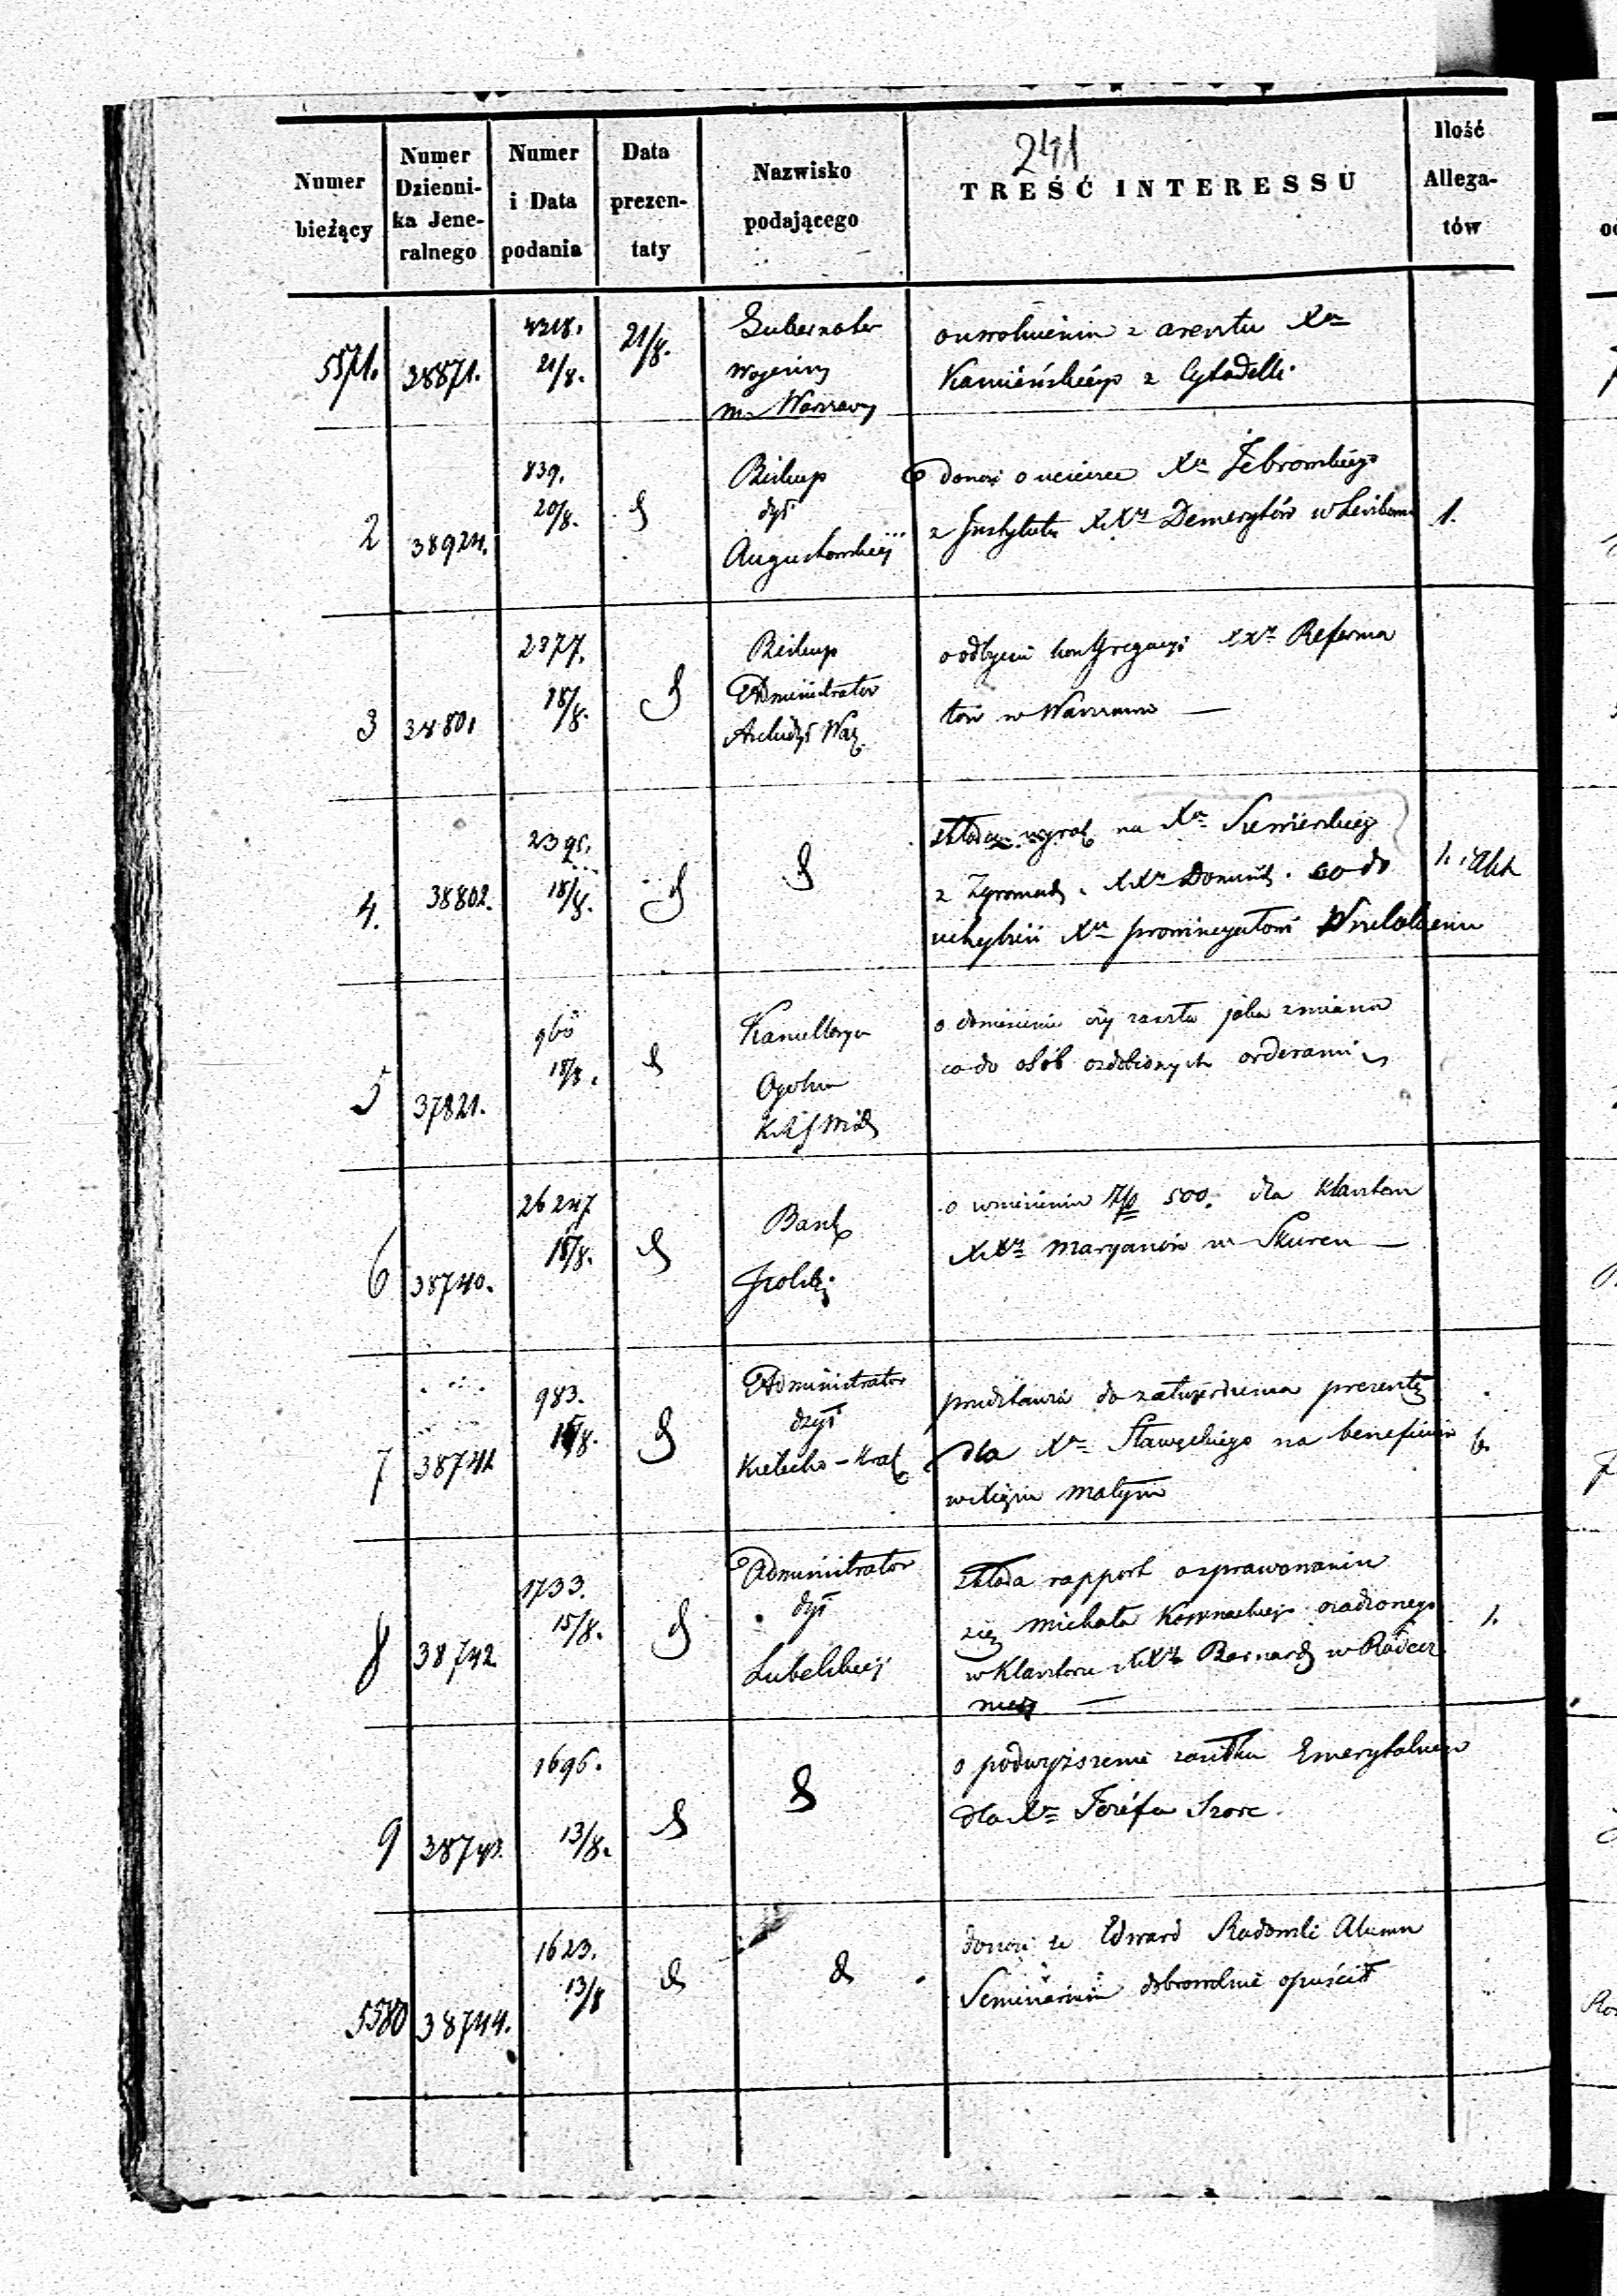 241
Numer bieżący
Numer Dzienni-ka Jene-ralnego
Numer i Data podania
Data prezen-taty
Nazwisko podającego
TREŚĆ INTERESSU
Ilość Allega-tów
5571. 38871. 21/8. 21/8.
Gubernator
wojenny
m. Warszawy
o uwolnieniu z aresztu Xa
Kamieńskiego z Cytadelli
2 38924. 839. 20/8.
Biskup
dyi
Augustowskiej
donosi o ucieczce Xa Żebrowskiego
z Instytutu XXy Demerytów w
1.
3 38801 2377. 18/8.
Biskup
Administrator
Archidyi Warz
o odbyciu kongregacyi XXy Reforma
tów w Warszawie —
4. 38802. 2395. 18/8.
na Xa
z Zgromadz. XXy Dominik. co do
Xu prowincyałowi
5 37821. 960 18/8.
Kancellarya
Ogólna
o doniesienie czy zaszła jaka zmiana
co do osób ozdobionych orderami
6 38740. 26247 18/8.
Bank
Polski
o wniesieniu 500. dla Klasztoru
XXy Maryanów w Skurcu —
7 38741 983.
Administrator
dyi
Kielecko-Krak
przedstawia do zatwierdzenia prezentę
dla Xa na beneficium
małym
6.
8 38742 1733. 15/8.
Administrator
dyi
Lubelskiej
składa rapport o sprawowaniu
się Michała osadzonego
w Klasztorze XXy Bernard w Radecz
nicy —
1.
9 38743. 1696. 13/8.
o podwyższenie zasiłku Emerytalnego
dla Xa Józefa Szorc.
5580 38744. 1623. 13/8
donosi że Edward Radomski Alumn
Seminarium dobrowolnie opuścił